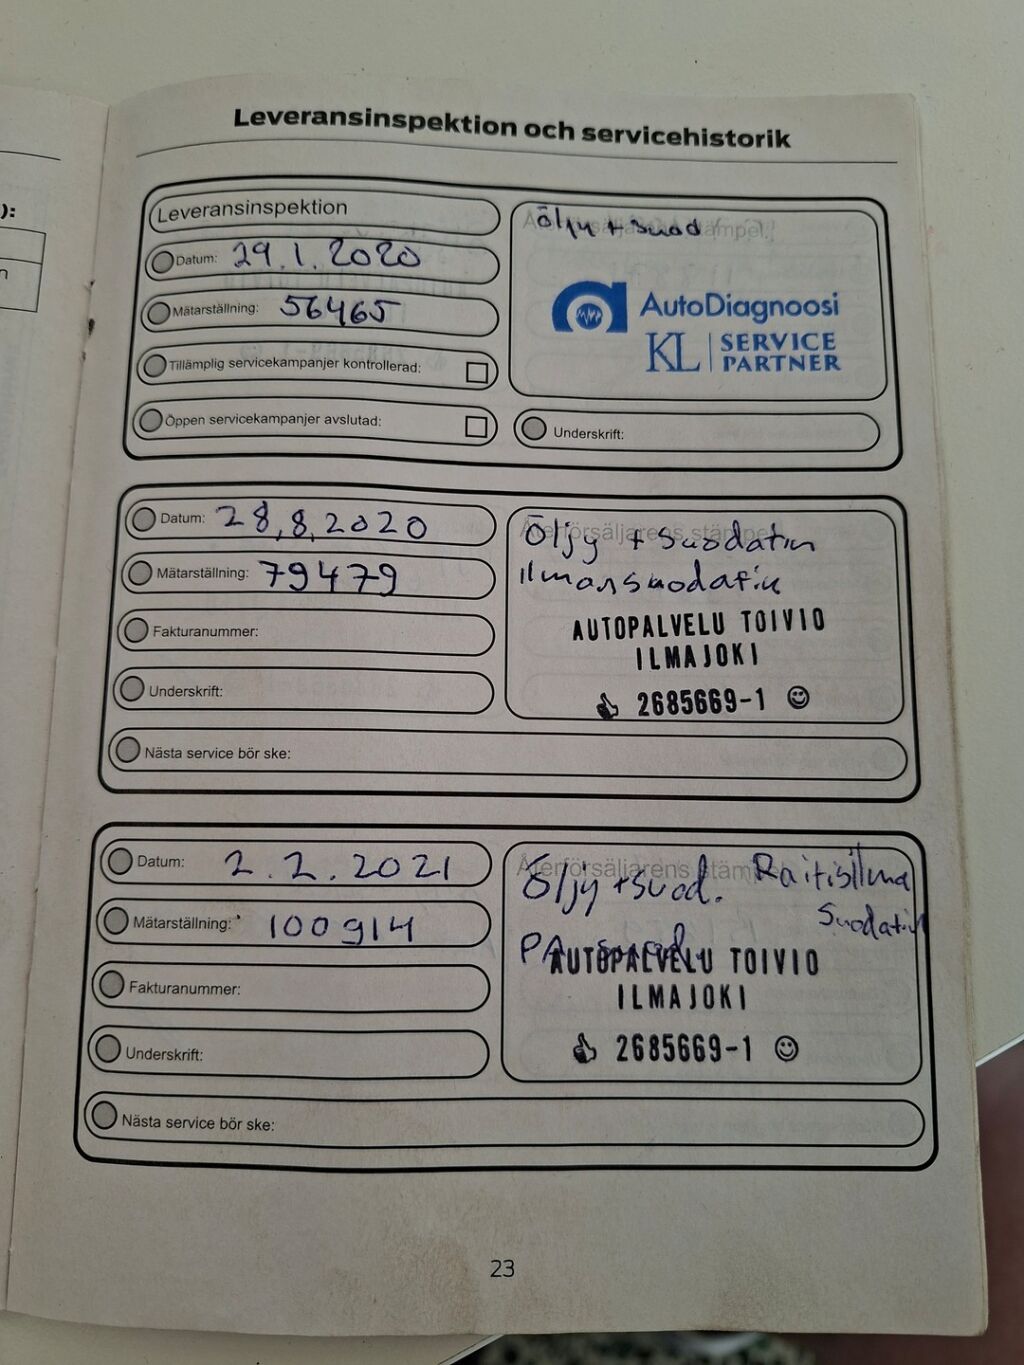 ):
n
Leveransinspektion och servicehistorik
Leveransinspektion
Datum: 29.1.2020
Mätarställning: 56465
Tillämplig servicekampanjer kontrollerad:
Öppen servicekampanjer avslutad:
Öljy + suod
AutoDiagnoosi
KL SERVICE
PARTNER
Underskrift:
Datum: 28.8.2020
Mätarställning: 79479
Fakturanummer:
Underskrift:
Återförsäljarens stämpel
Öljy + Suodatin
ilmansuodatin
AUTOPALVELU TOIVIO
ILMAJOKI
2685669-1
Nästa service bör ske:
Datum: 2.2.2021
Mätarställning: 100914
Fakturanummer:
Underskrift:
Återförsäljarens stämpel
Öljy + suod. Raitisilma
Suodatin
PA suod.
AUTOPALVELU TOIVIO
ILMAJOKI
2685669-1
Nästa service bör ske:
23